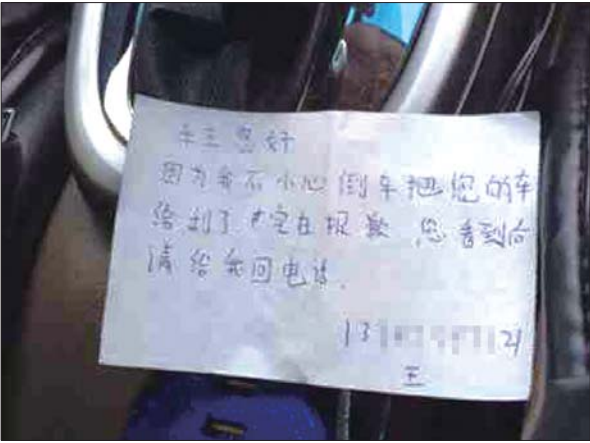 车主您好
因为我不小心倒车把您的车
给刮了 实在报歉 您看到后
请给我回电话.
13 21
王